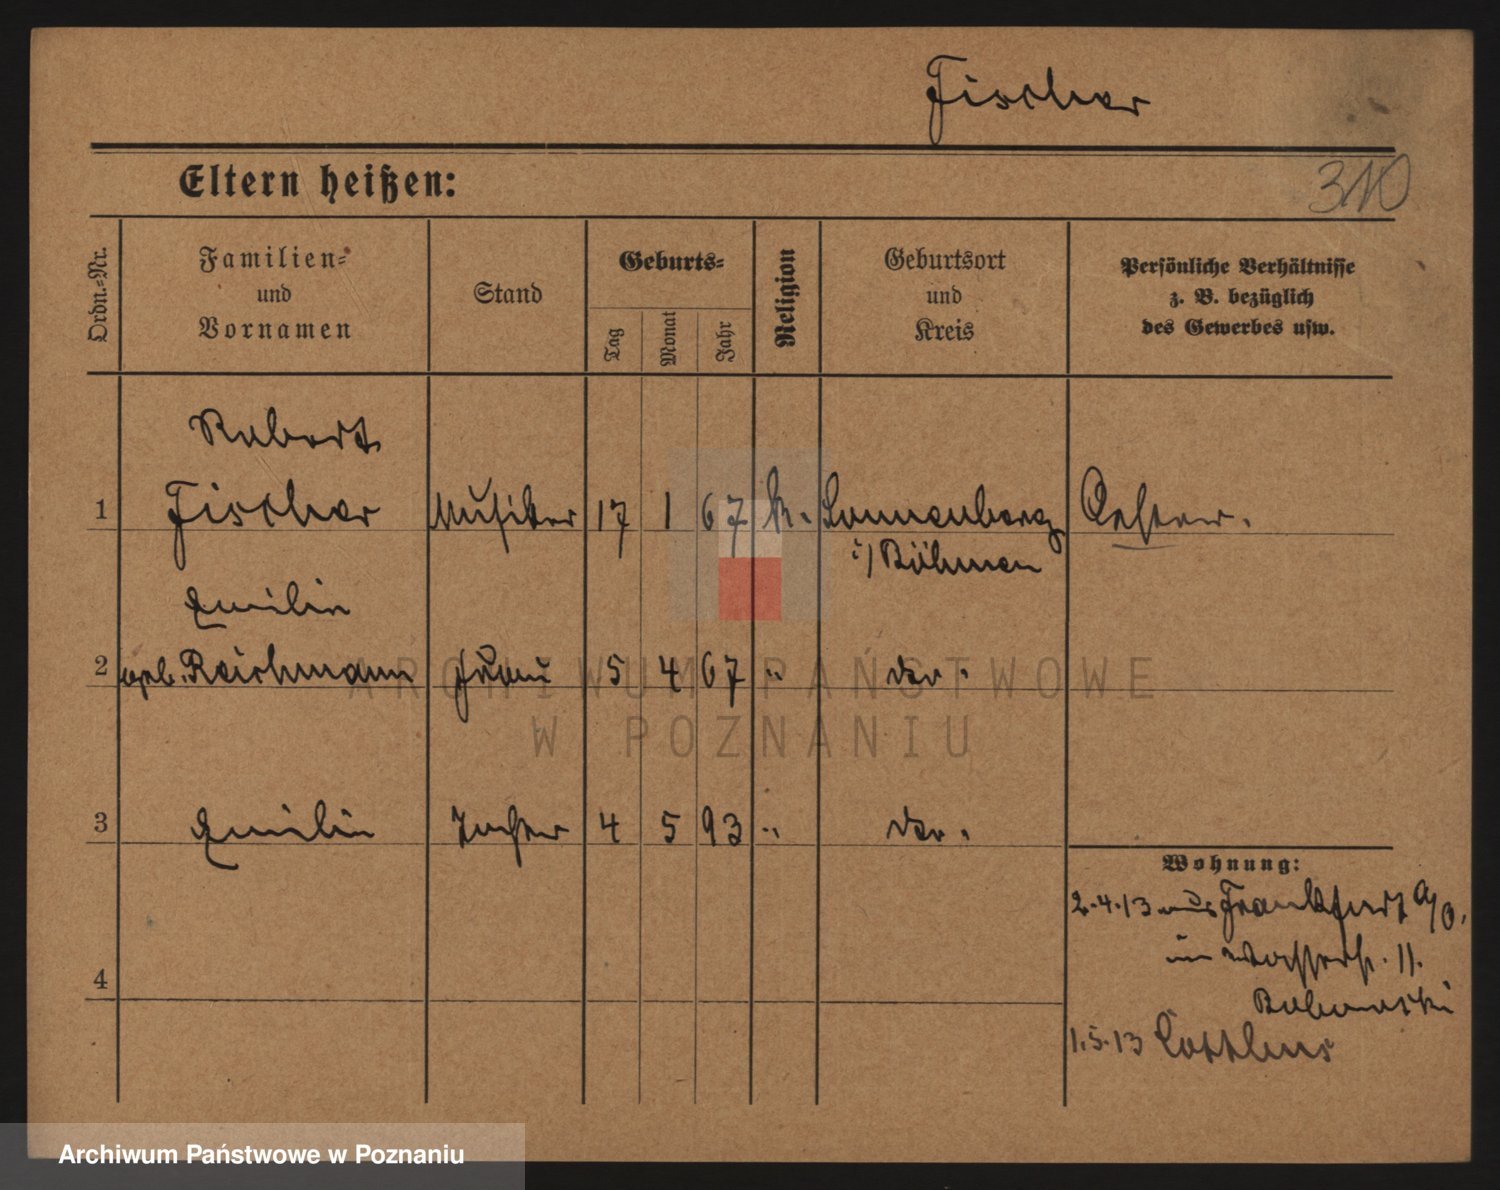 Fischer
Eltern heißen:
310
Ordn.-Nr.
Familien-
und
Vornamen
Stand
Geburts-
Tag
Monat
Jahr
Religion
Geburtsort
und
Kreis
Persönliche Verhältnisse
z. B. bezüglich
des Gewerbes usw.
Robert
1 Fischer Musiker 17 1 67 k. Sonnenberg Oester.
i/ Böhmen
Emilie
2 geb. Reichmann Frau 5 4 67 " do.
3 Emilie Tochter 4 5 93 " do.
Wohnung:
2.4.13 aus Frankfurt a/O.
in Wasserstr. 11.
4
1.5.13 Cottbus
ARCHIWUM PAŃSTWOWE
W POZNANIU
Archiwum Państwowe w Poznaniu